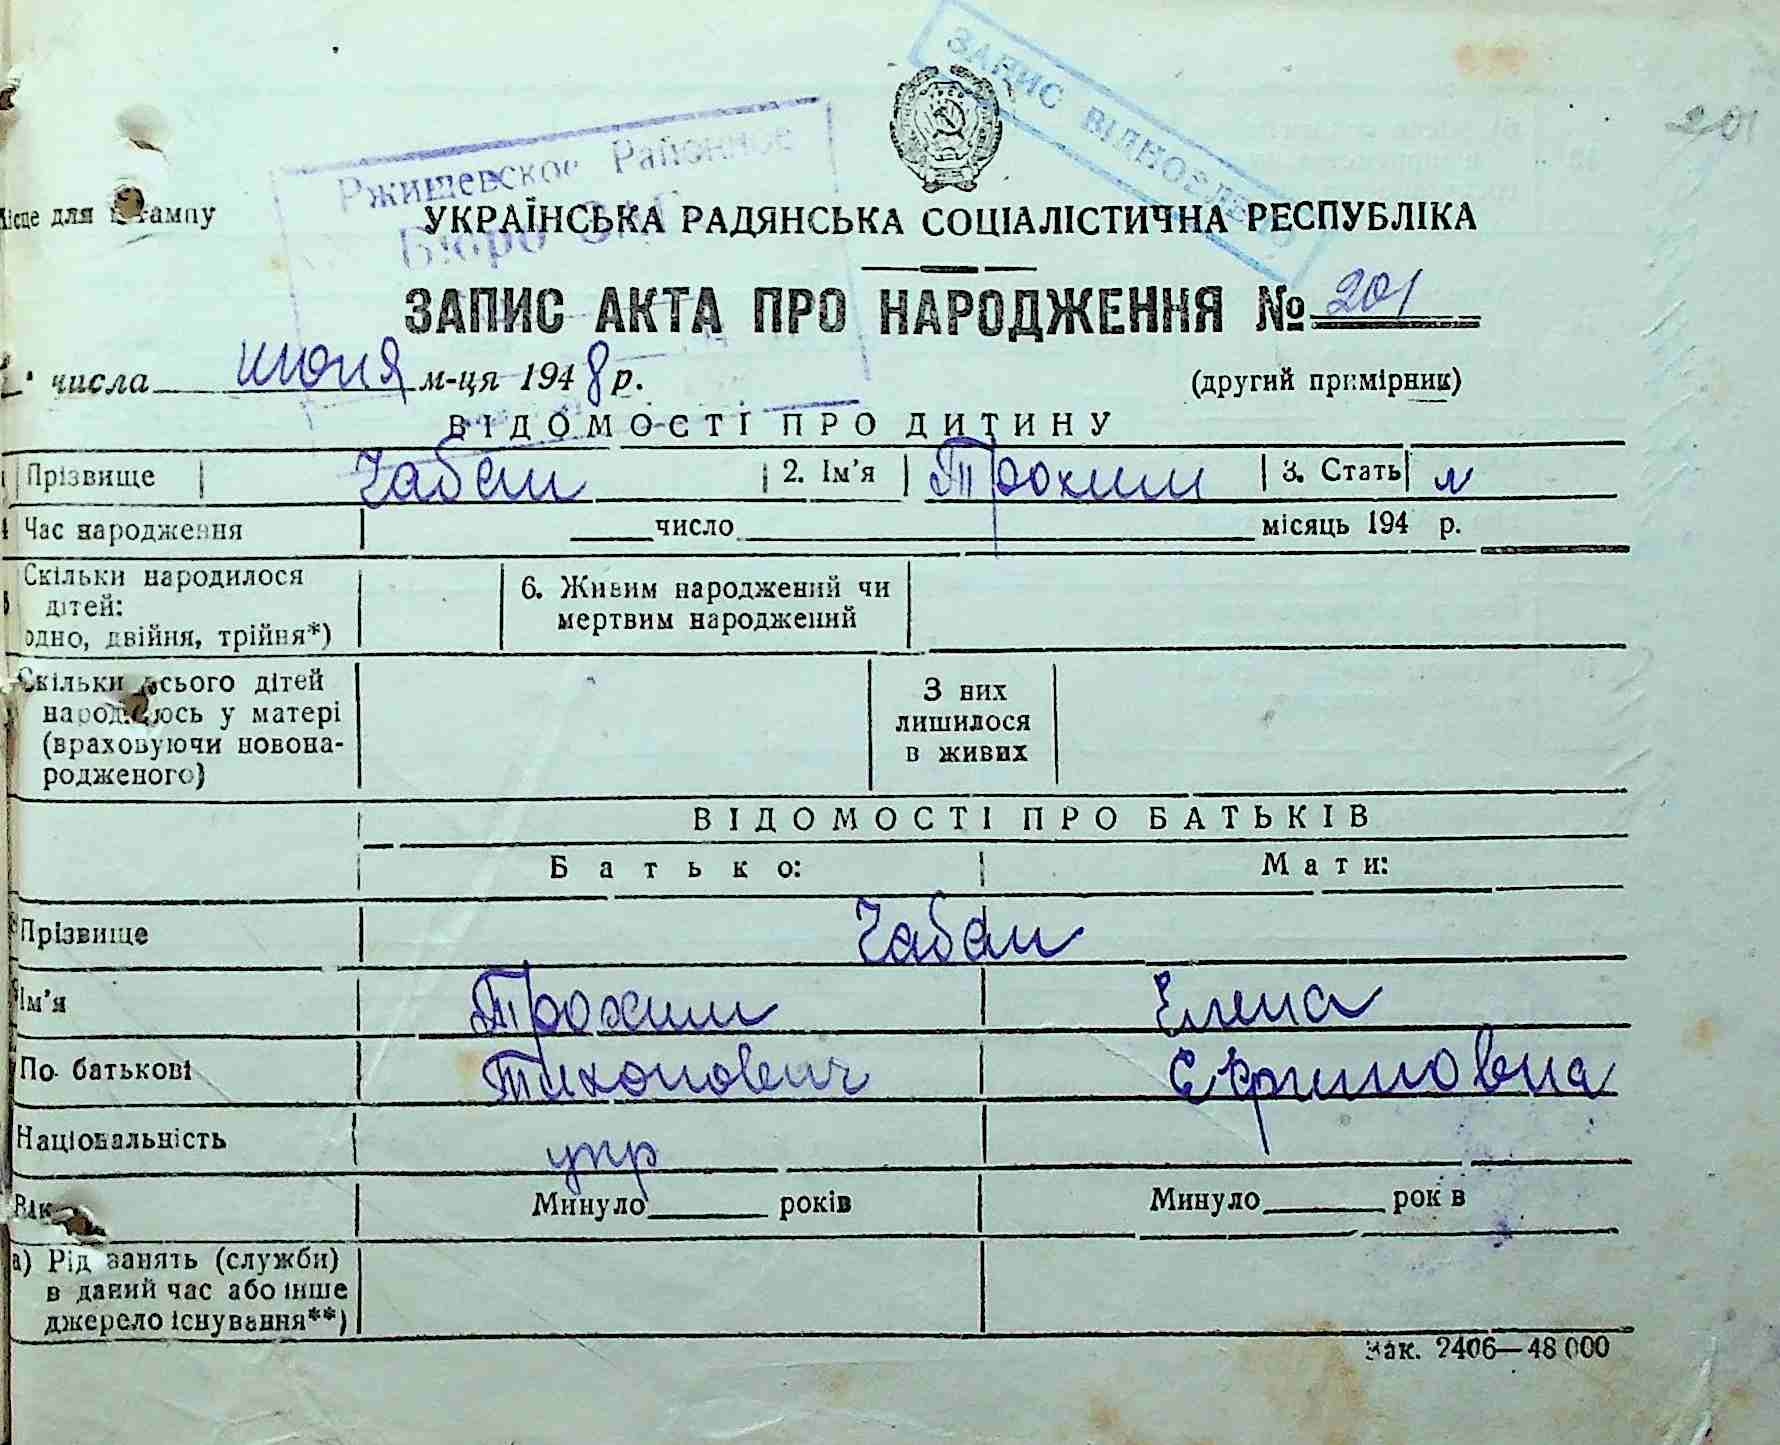 ЗАПИС ВІДНОВЛЕНО
201
Ржищевское Районное
Бюро ЗАГС
Місце для штампу
УКРАЇНСЬКА РАДЯНСЬКА СОЦІАЛІСТИЧНА РЕСПУБЛІКА
ЗАПИС АКТА ПРО НАРОДЖЕННЯ № 201
числа июня м-ця 1948 р. (другий примірник)
ВІДОМОСТІ ПРО ДИТИНУ
Прізвище Чабан 2. Ім'я Трохим 3. Стать м
Час народження число місяць 194 р.
Скільки народилося
дітей:
одно, двійня, трійня*)
6. Живим народжений чи
мертвим народжений
Скільки всього дітей
народилось у матері
(враховуючи новона-
родженого)
З них
лишилося
в живих
ВІДОМОСТІ ПРО БАТЬКІВ
Батько: Мати:
Прізвище Чабан
Ім'я Трохим Елена
По батькові Тихонович Єфимовна
Національність укр
Вік Минуло років Минуло років
а) Рід занять (служби)
в даний час або інше
джерело існування**)
Зак. 2406—48 000